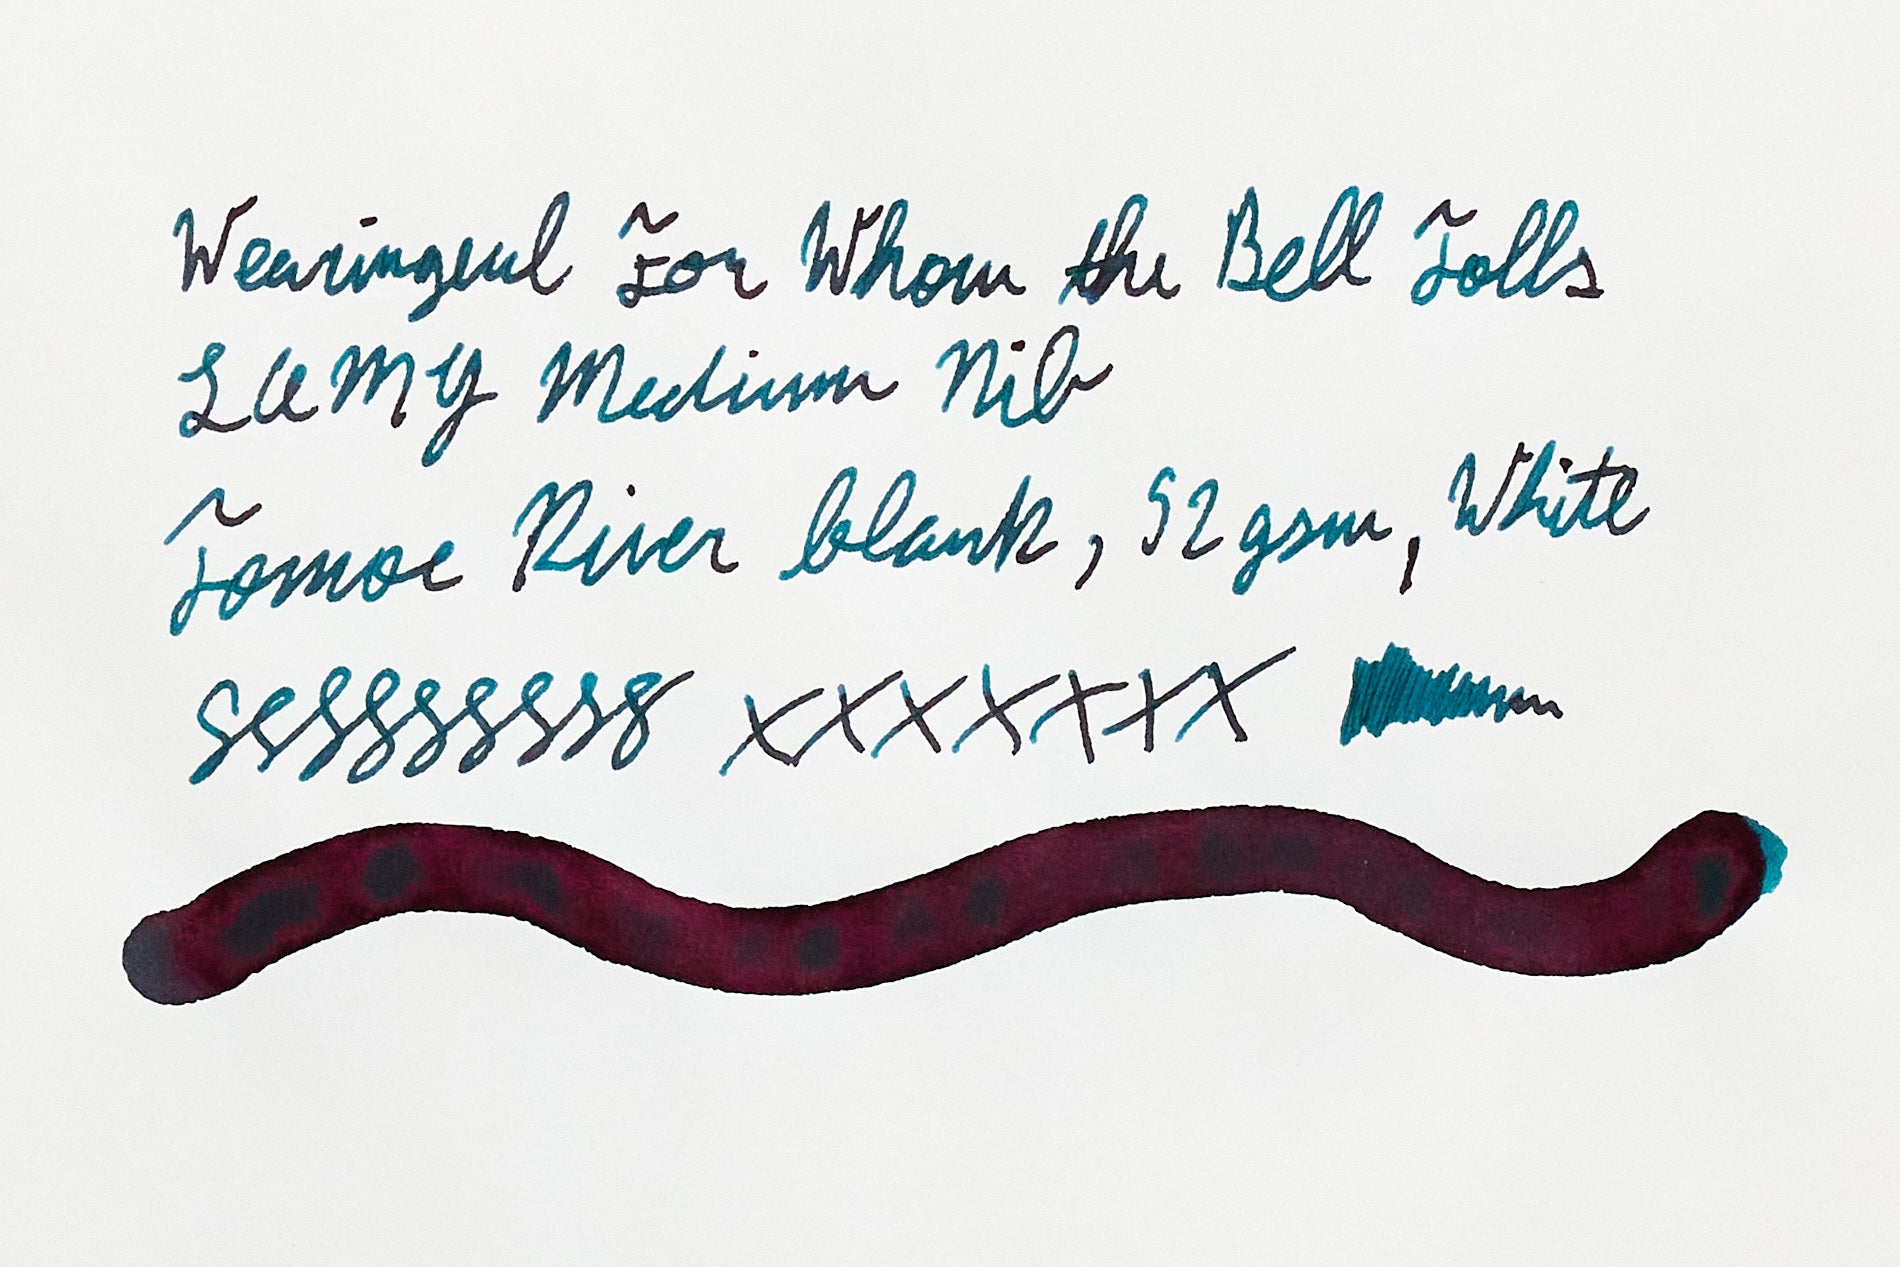 Wearingeul For Whom the Bell Tolls
LAMY Medium Nib
Tomoe River blank, 52gsm, White
xxxxxxx